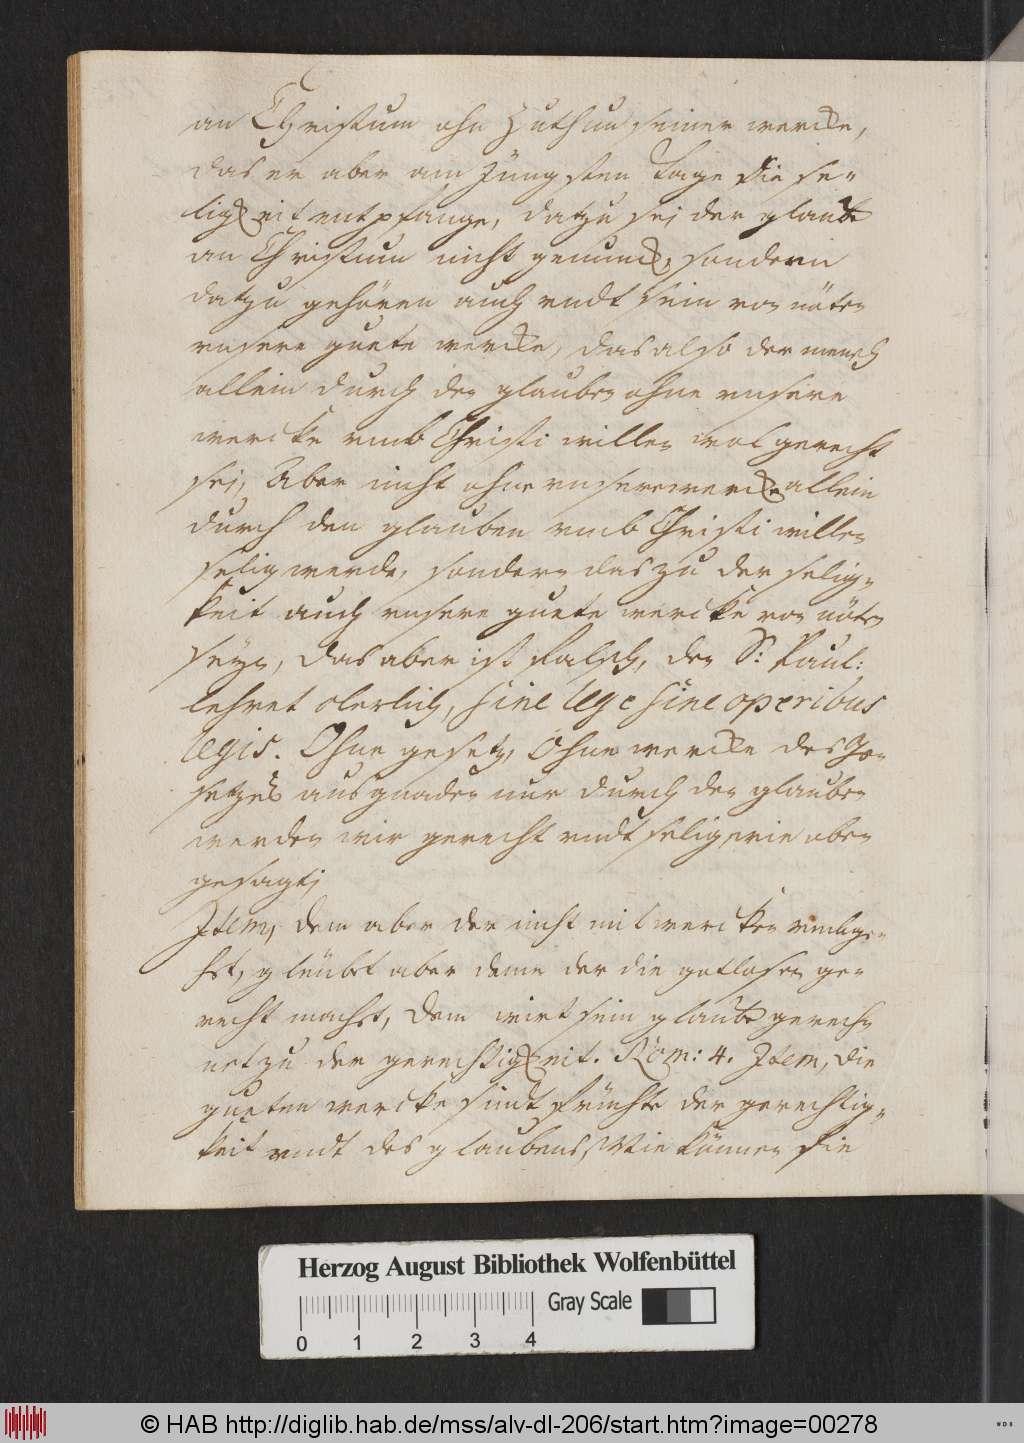 an Christum ohn Zuthun seiner wercke,
das er aber am Jüngsten tage die se-
ligkeit entpfange, datzu sej der glaube
an Christum nicht genunck, sondern
datzu gehören auch undt sein von nöten
unsere guete wercke, das also der mensch
allein durch den glauben ohne unsere
wercke umb Christi willen wol gerecht
sej, Aber nicht ohne unsere wercke allein
durch den glauben umb Christi willen
selig werde, sondern das zu der selig-
keit auch unsere guete wercke von nöten
seyn, das aber ist falsch, den S: Paul:
lehret clerlich, sine lege sine operibus
legis. Ohne gesetz, Ohne wercke des Ge-
setzes aus gnaden nur durch den glauben
werden wir gerecht undt selig, wie oben
gesagt,
Item, dem aber der nicht mit wercken umbge-
het, gleubt aber deme der die gotlosen ge-
recht machet, dem wirt sein glaube gerech-
net zu der gerechtigkeit. Röm: 4. Item, die
gueten wercke sindt früchte der gerechtig-
keit undt des glaubens, Wie können sie
Herzog August Bibliothek Wolfenbüttel
Gray Scale
0 1 2 3 4
© HAB http://diglib.hab.de/mss/alv-dl-206/start.htm?image=00278